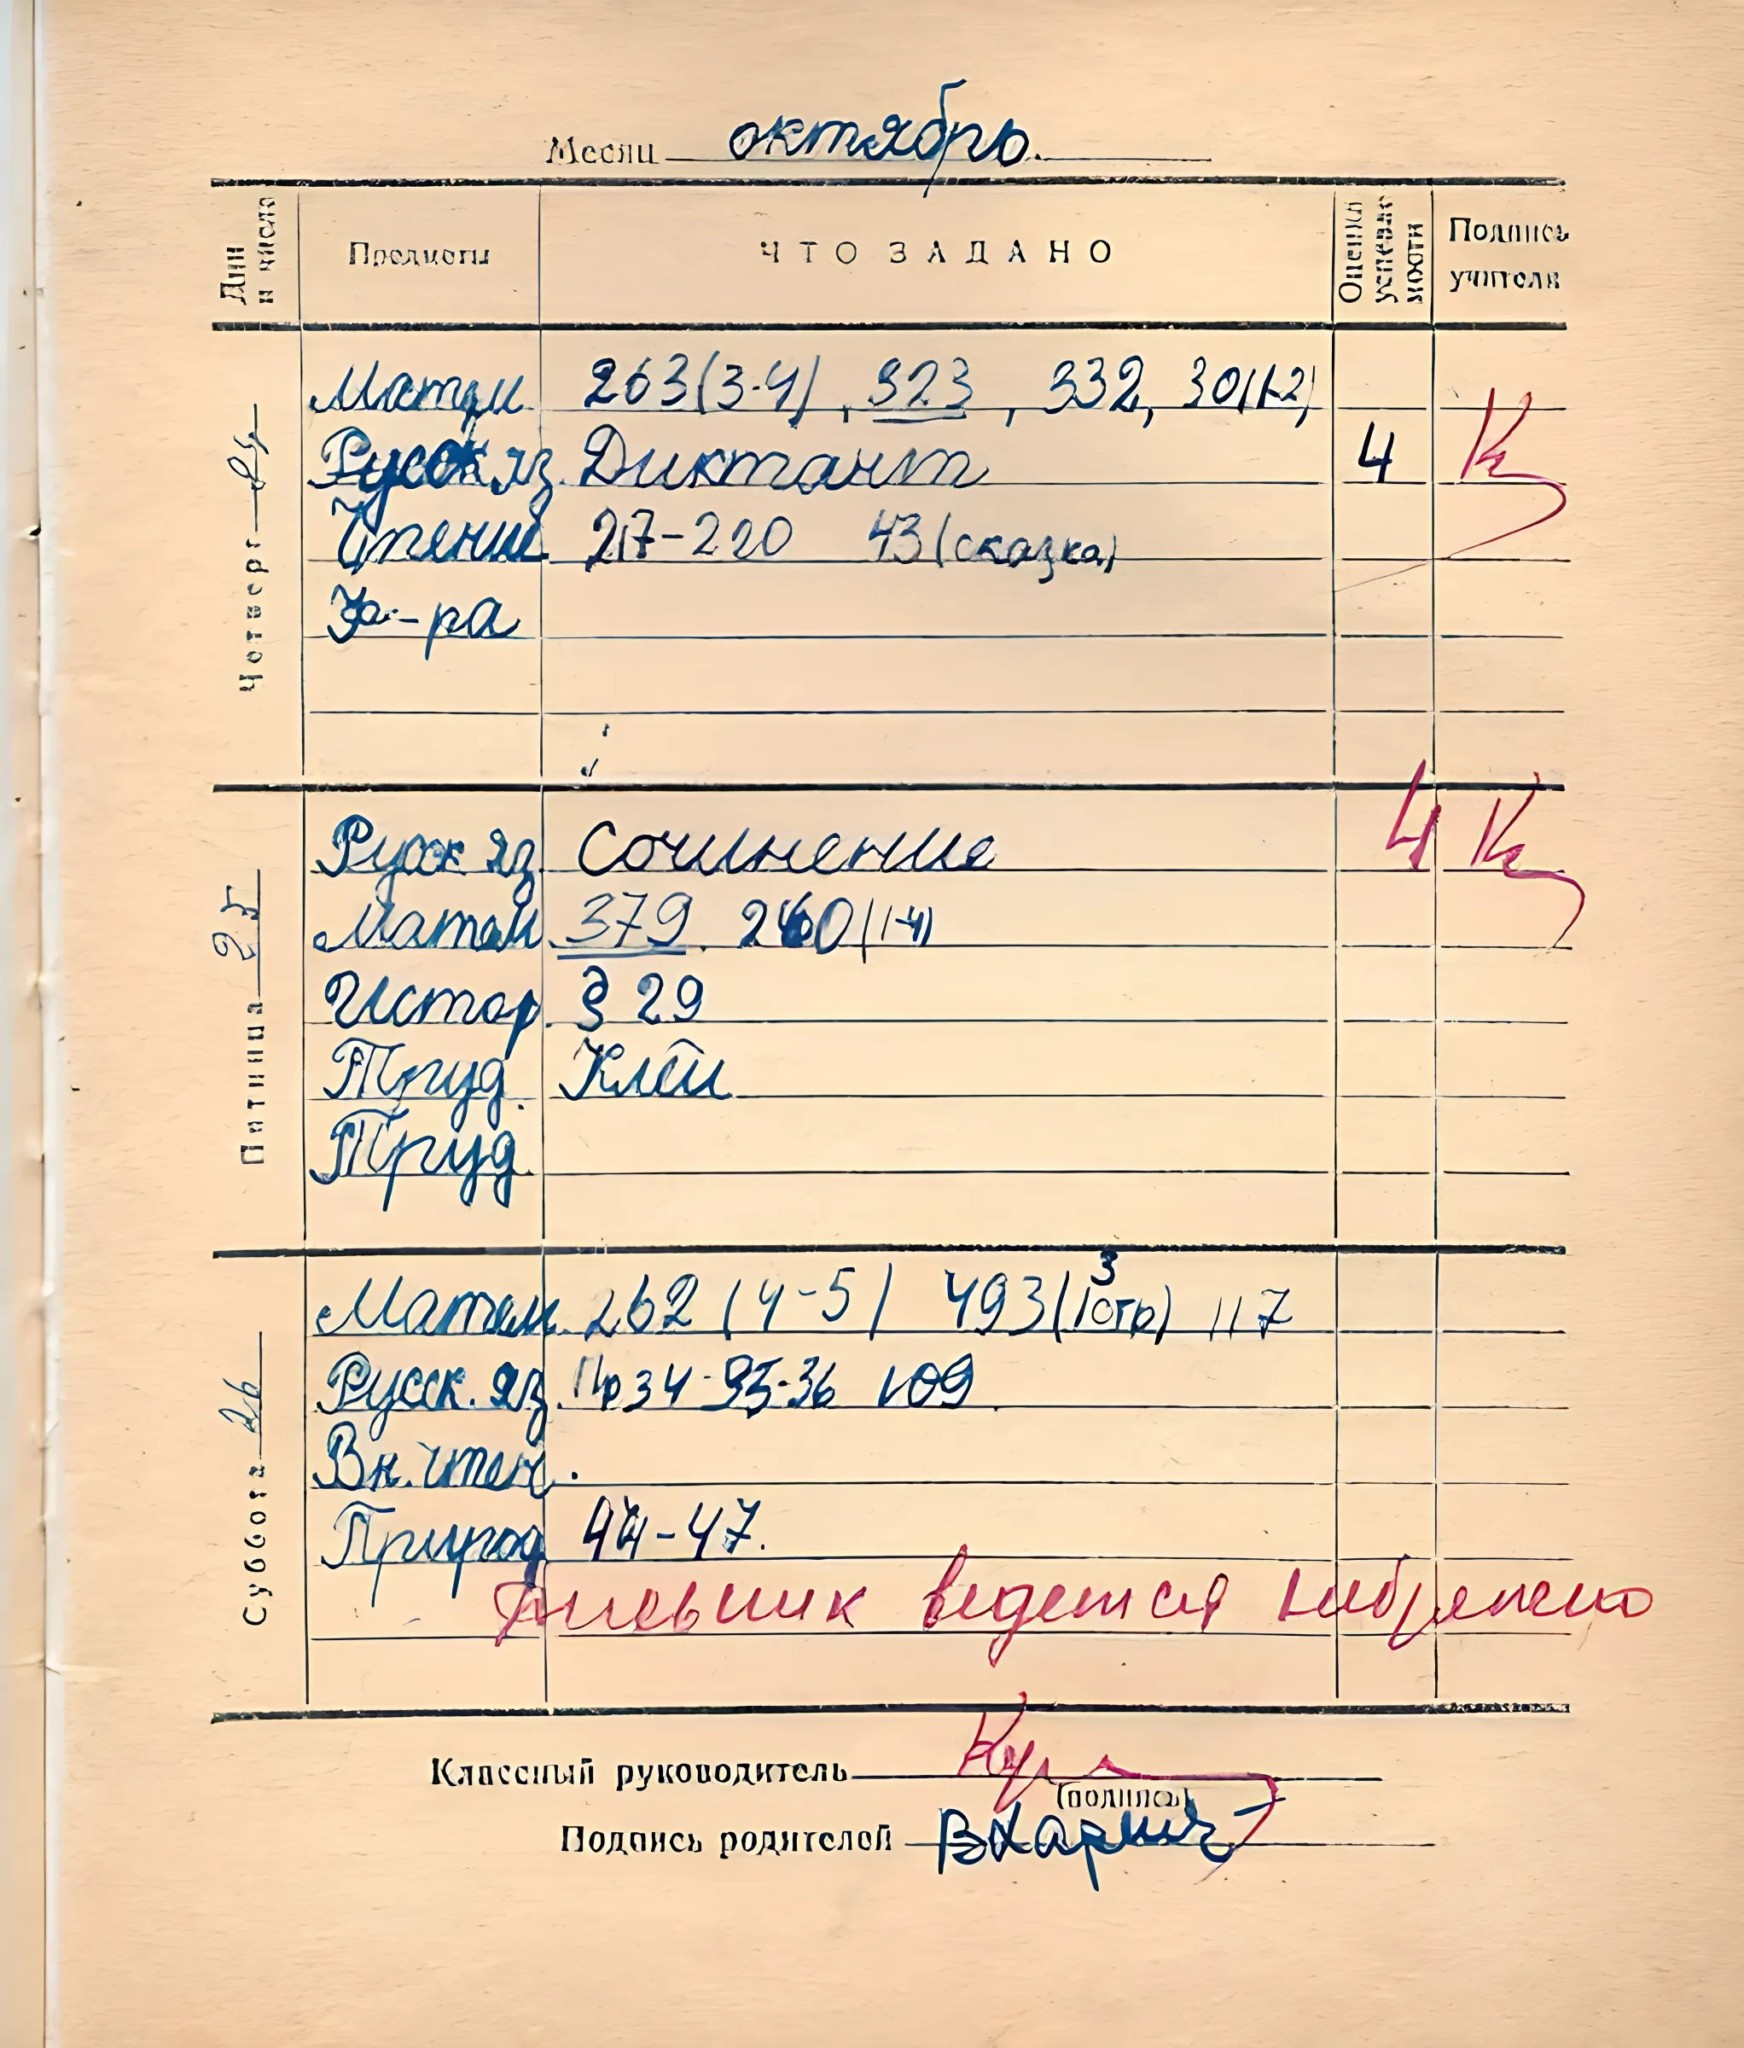 Месяц октябрь.
Дни и числа Предметы ЧТО ЗАДАНО Оценка успеваемости Подпись учителя
Четверг 24
Матем. 263(3-4), 323, 332, 30(1-2)
Русск яз. Диктант 4 К
Чтение 217-220 43 (сказка)
Ф-ра
Пятница 25
Русск яз. Сочинение 4 К
Матем. 379. 260(1-4)
Истор. § 29
Труд. Клей
Труд.
Суббота 26
Матем. 262 (4-5) 493(1стр) 3 117
Русск. яз. Пр 34-35-36 109.
Вн. чтен.
Природ 44-47.
Дневник ведется небрежно
Классный руководитель
(подпись)
Подпись родителей